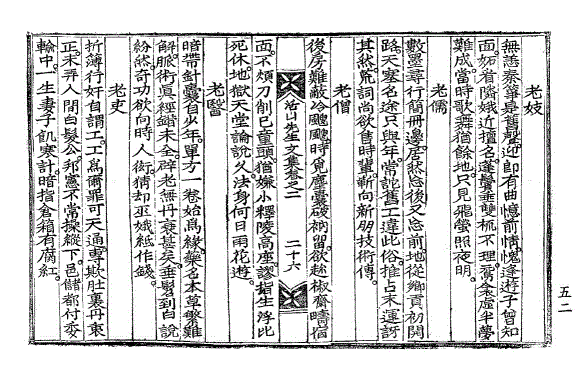 老妓
無語秦箏是舊聲。迎郎有曲憶前情。愧逢遊子曾知
面。妬看隣娥近擅名。蓬鬢垂雙梳不理。鴛衾虛半夢
難成。當時歌舞猶餘地。只見飛螢照夜明。
老儒
數墨尋行簡冊邊。居然忘後又忘前。地從鄉貢初開
路。天塞名途只與年。常詑舊工違此俗。推占末運訝
其然。荒詞尚欲售時輩。嶄向新朋技術傳。
老僧
後房難蔽冷颼颼。時覓塵囊破衲留。欲趁椒齋晴宿
活山先生文集卷之二 二十六
面。不煩刀削已童頭。猶嫌小釋陵高座。謬指生浮比
死休。地獄天堂論說久。法身何日雨花遊。
老醫
暗帶針囊自少年。單方一卷始爲緣。藥名本草繁難
解。脈術眞經錯未全。辟老無丹衰甚矣。垂髫到白說
紛然。奇功欲向時人衒。猜却巫娥紙作錢。
老吏
折薄行奸自謂工。工爲爾罪可天通。專欺肚裏丹衷
正。未弄人間白髮公。邦憲不常操縱下。邑儲都付委
輸中。一生妻子飢寒計。暗指倉箱有腐紅。
五二